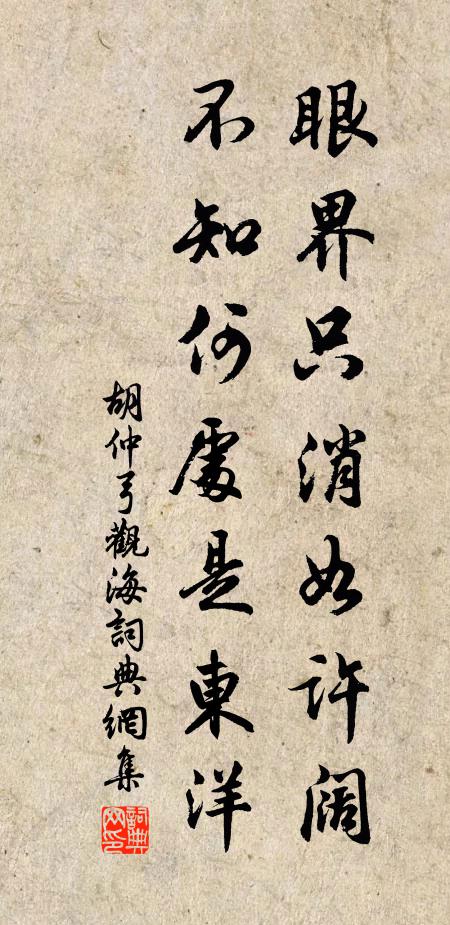 眼界只消如許闊
不知何處是東洋
胡仲弓觀海詞典網集
詞典網印